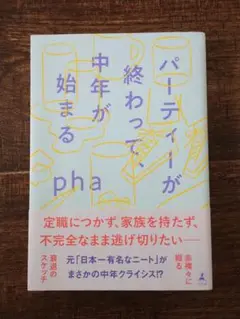 パーティーが
終わって、
中年が
始まる
pha
定職につかず、家族を持たず、
不完全なまま逃げ切りたい——
元「日本一有名なニート」が
まさかの中年クライシス!?
赤裸々に綴る
衰退のスケッチ